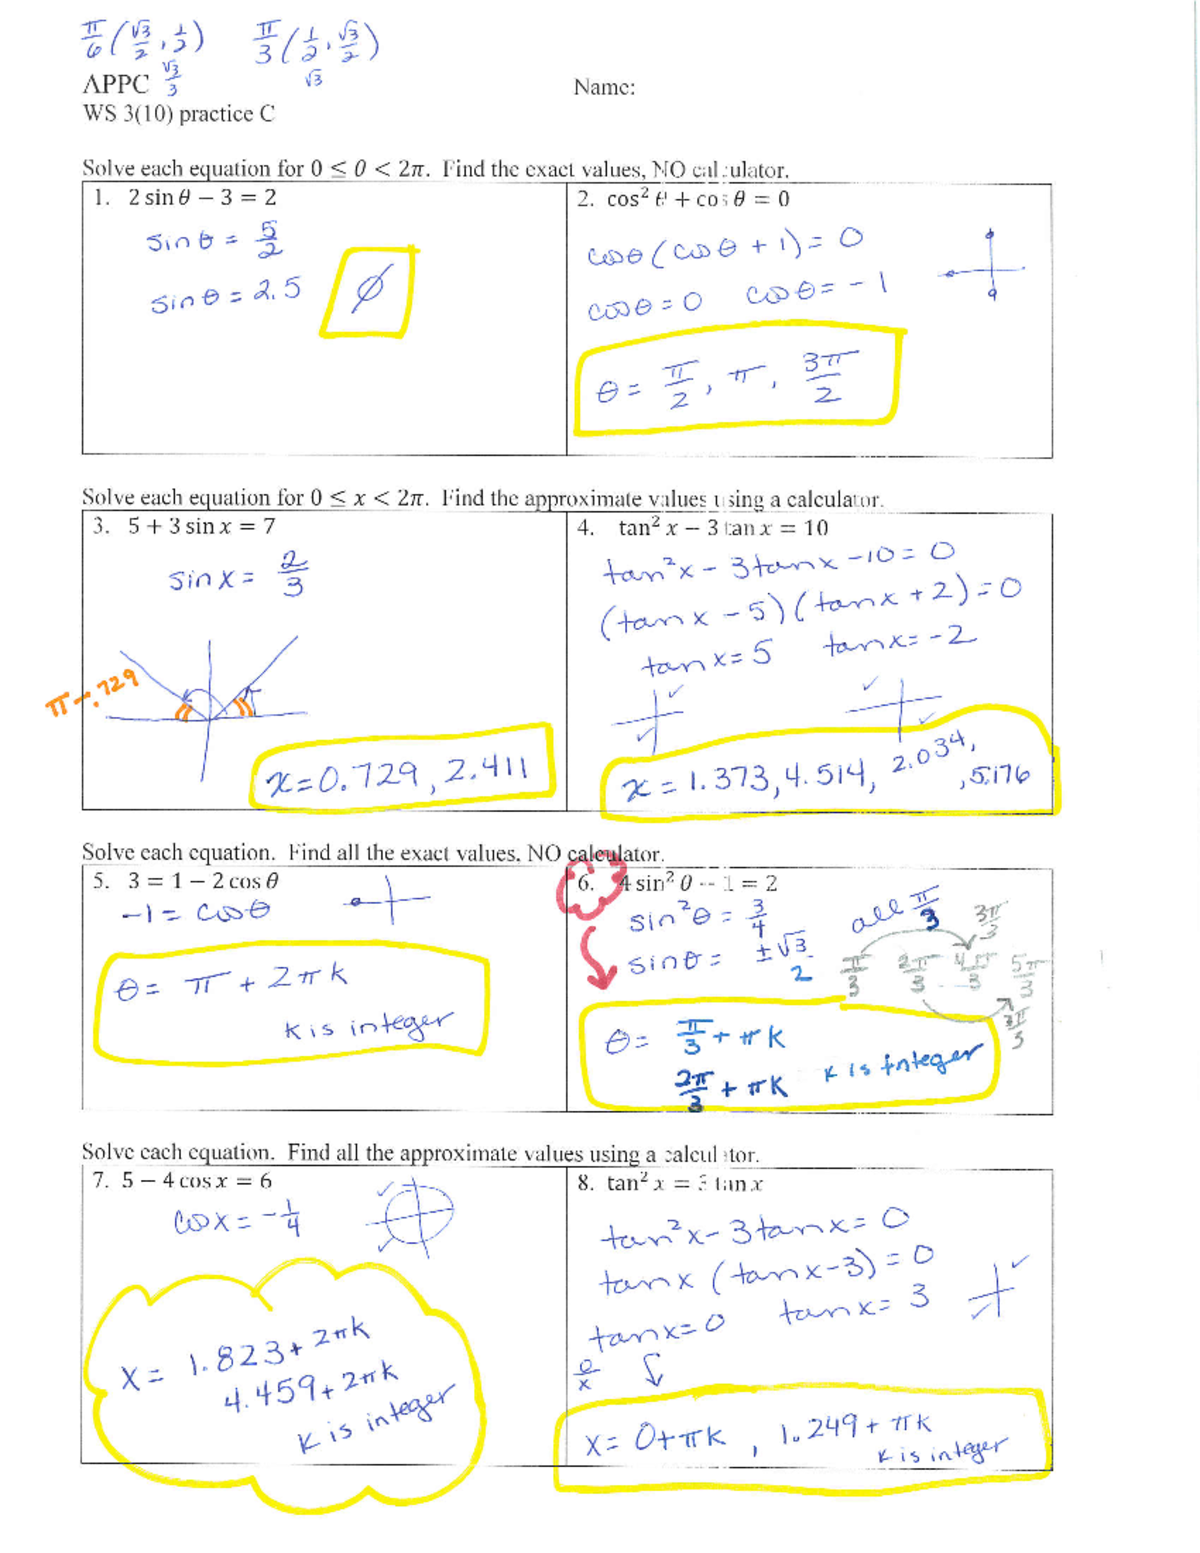 π/6 (√3/2, 1/2) π/3 (1/2, √3/2)
√3/3 √3
APPC Name:
WS 3(10) practice C
Solve each equation for 0 ≤ θ < 2π. Find the exact values, NO calculator.
1. 2 sin θ − 3 = 2
sin θ = 5/2
sin θ = 2.5
∅
2. cos² θ + cos θ = 0
cos θ (cos θ + 1) = 0
cos θ = 0 cos θ = −1
θ = π/2, π, 3π/2
Solve each equation for 0 ≤ x < 2π. Find the approximate values using a calculator.
3. 5 + 3 sin x = 7
sin x = 2/3
π − .729
x = 0.729, 2.411
4. tan² x − 3 tan x = 10
tan²x − 3tanx − 10 = 0
(tanx − 5)(tanx + 2) = 0
tanx = 5 tanx = −2
x = 1.373, 4.514, 2.034, , 5.176
Solve each equation. Find all the exact values, NO calculator.
5. 3 = 1 − 2 cos θ
−1 = cos θ
θ = π + 2πk
k is integer
6. 4 sin² θ − 1 = 2
sin²θ = 3/4
sin θ = ±√3/2
all π/3
3π/3
π/3 2π/3 4π/3 5π/3
θ = π/3 + πk
2π/3 + πk k is integer
Solve each equation. Find all the approximate values using a calculator.
7. 5 − 4 cos x = 6
cos x = −1/4
x = 1.823 + 2πk
4.459 + 2πk
k is integer
8. tan² x = 3 tan x
tan²x − 3tanx = 0
tanx (tanx − 3) = 0
tanx = 0 tanx = 3
0/x
x = 0 + πk , 1.249 + πk
k is integer